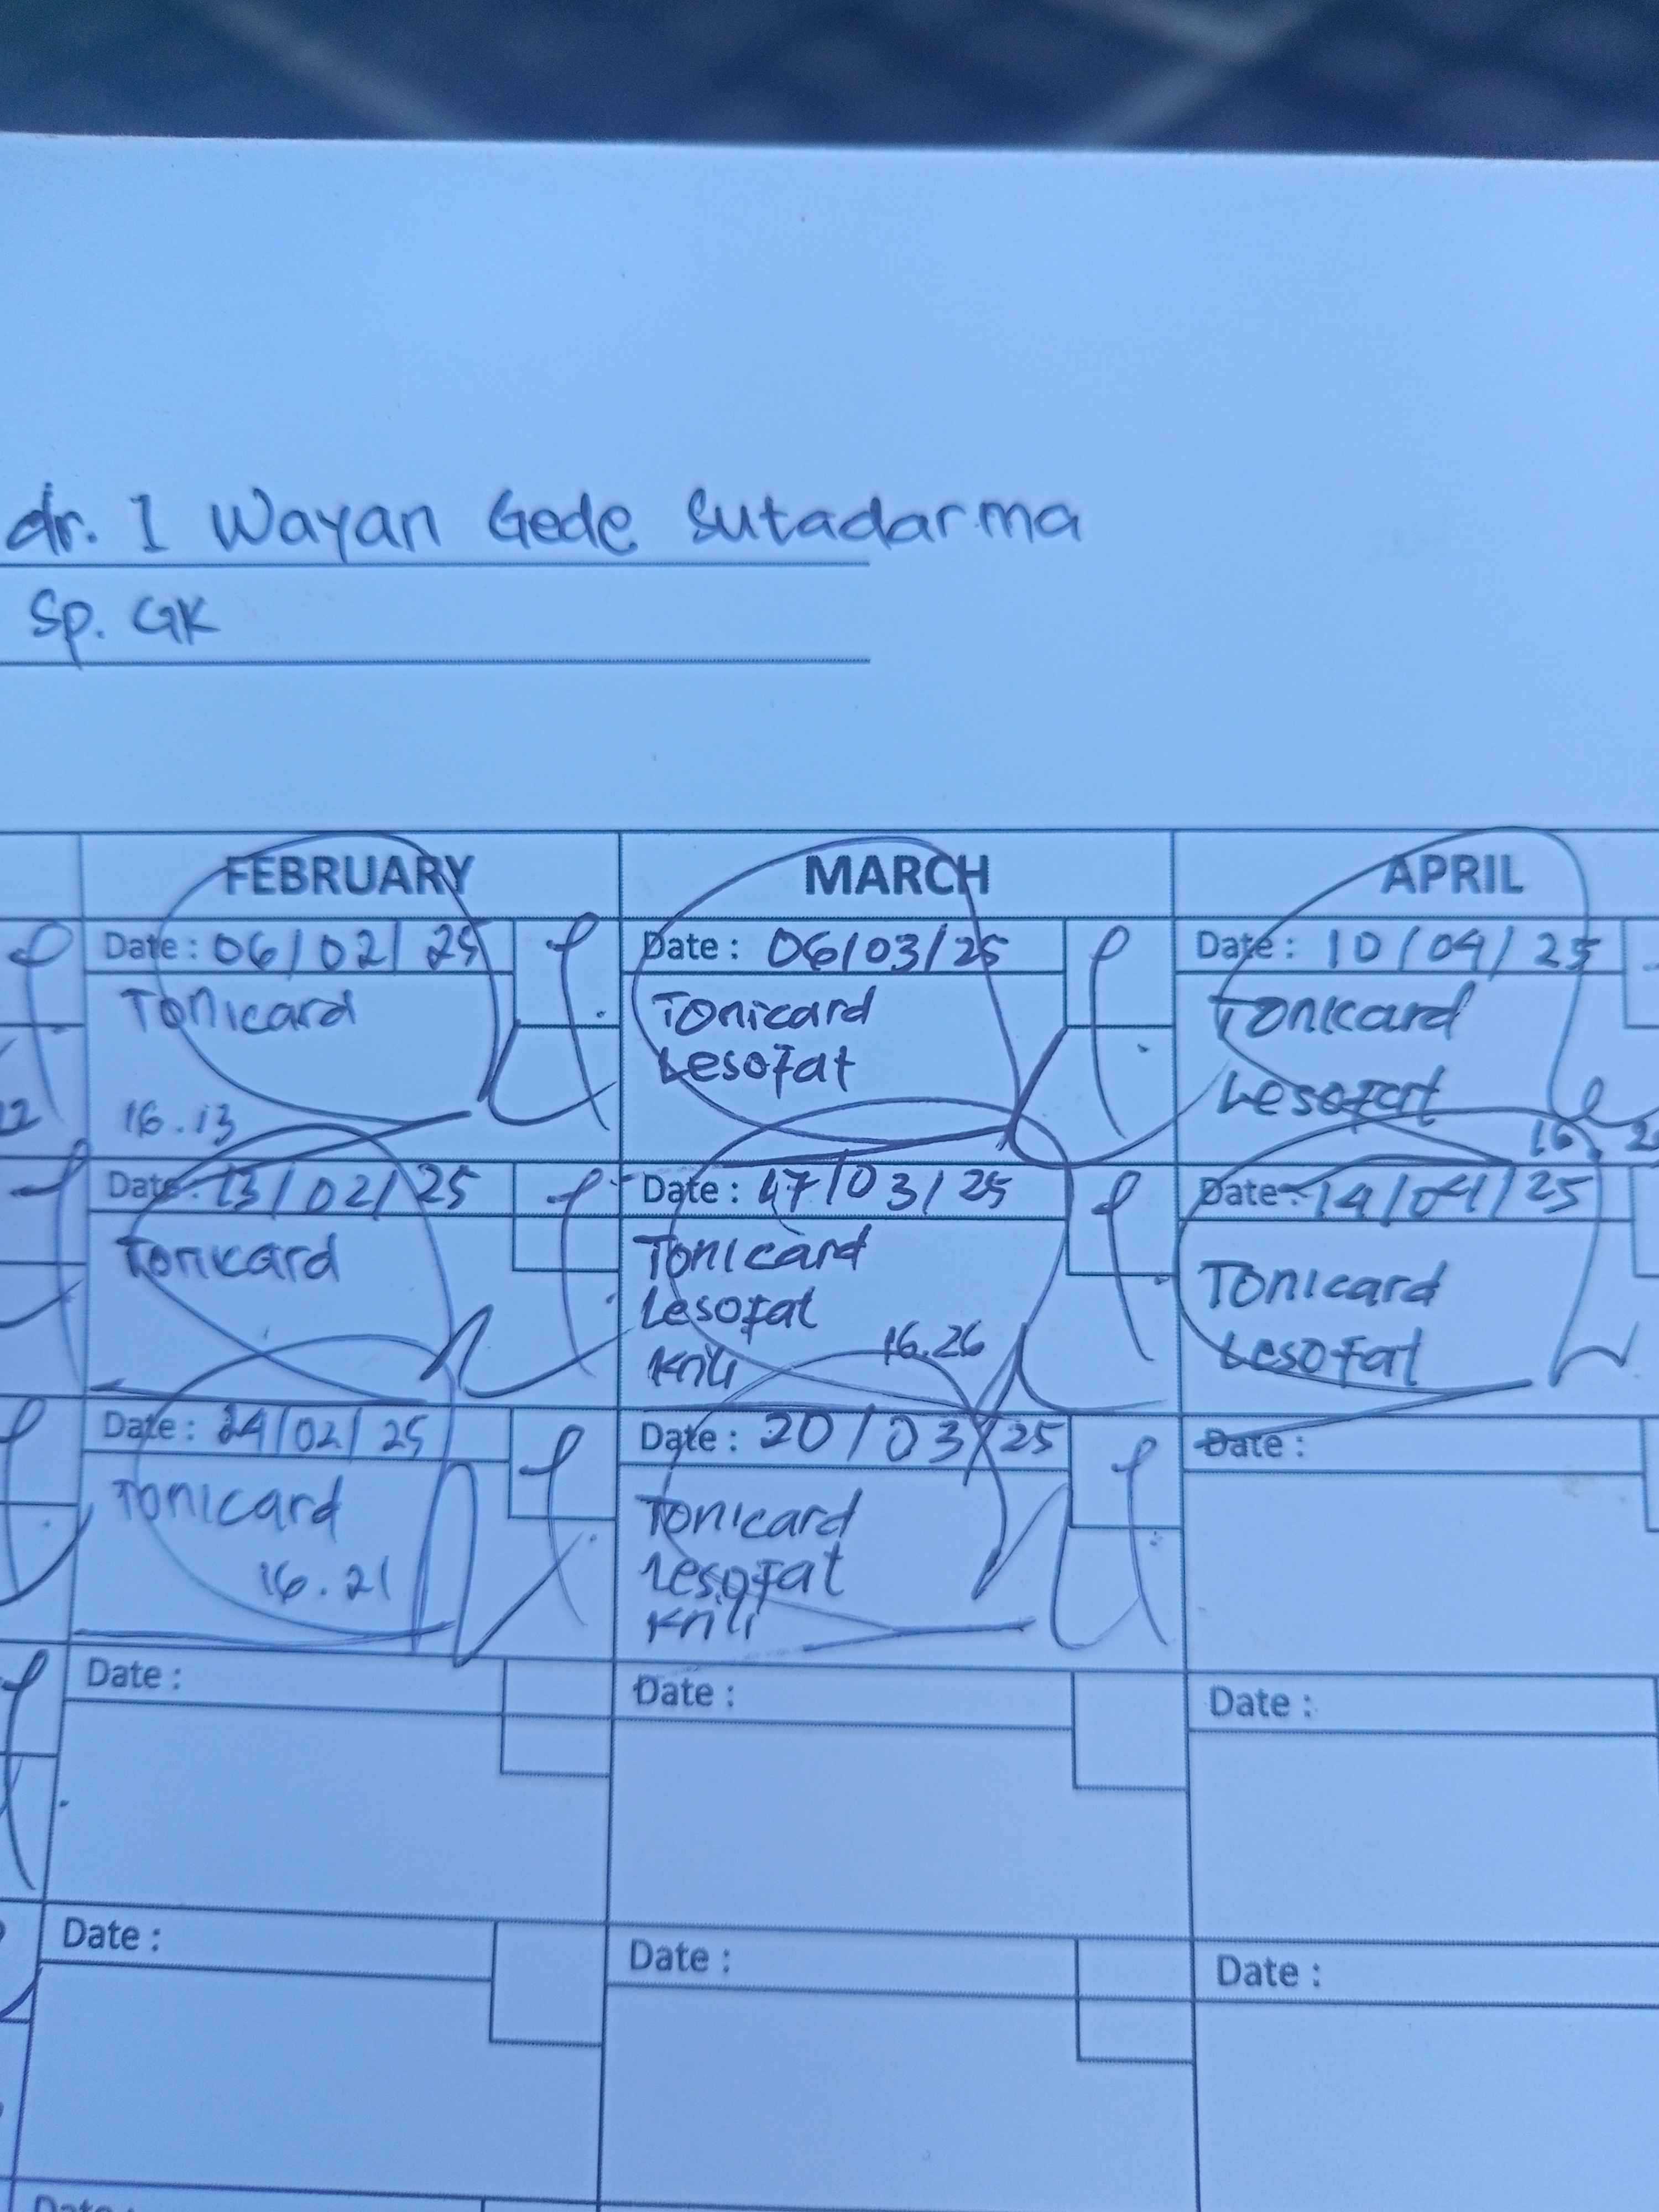 dr. I Wayan Gede Sutadarma
Sp. GK
FEBRUARY
Date : 06/02/25
Tonicard
16.13
Date : 13/02/25
Tonicard
Date : 24/02/25
Tonicard
16.21
Date :
Date :
MARCH
Date : 06/03/25
Tonicard
Lesofat
Date : 17/03/25
Tonicard
Lesofat
Krili
16.26
Date : 20/03/25
Tonicard
Lesofat
Krili
Date :
Date :
APRIL
Date : 10/04/25
Tonicard
Lesofat
Date : 14/04/25
Tonicard
Lesofat
Date :
Date :
Date :